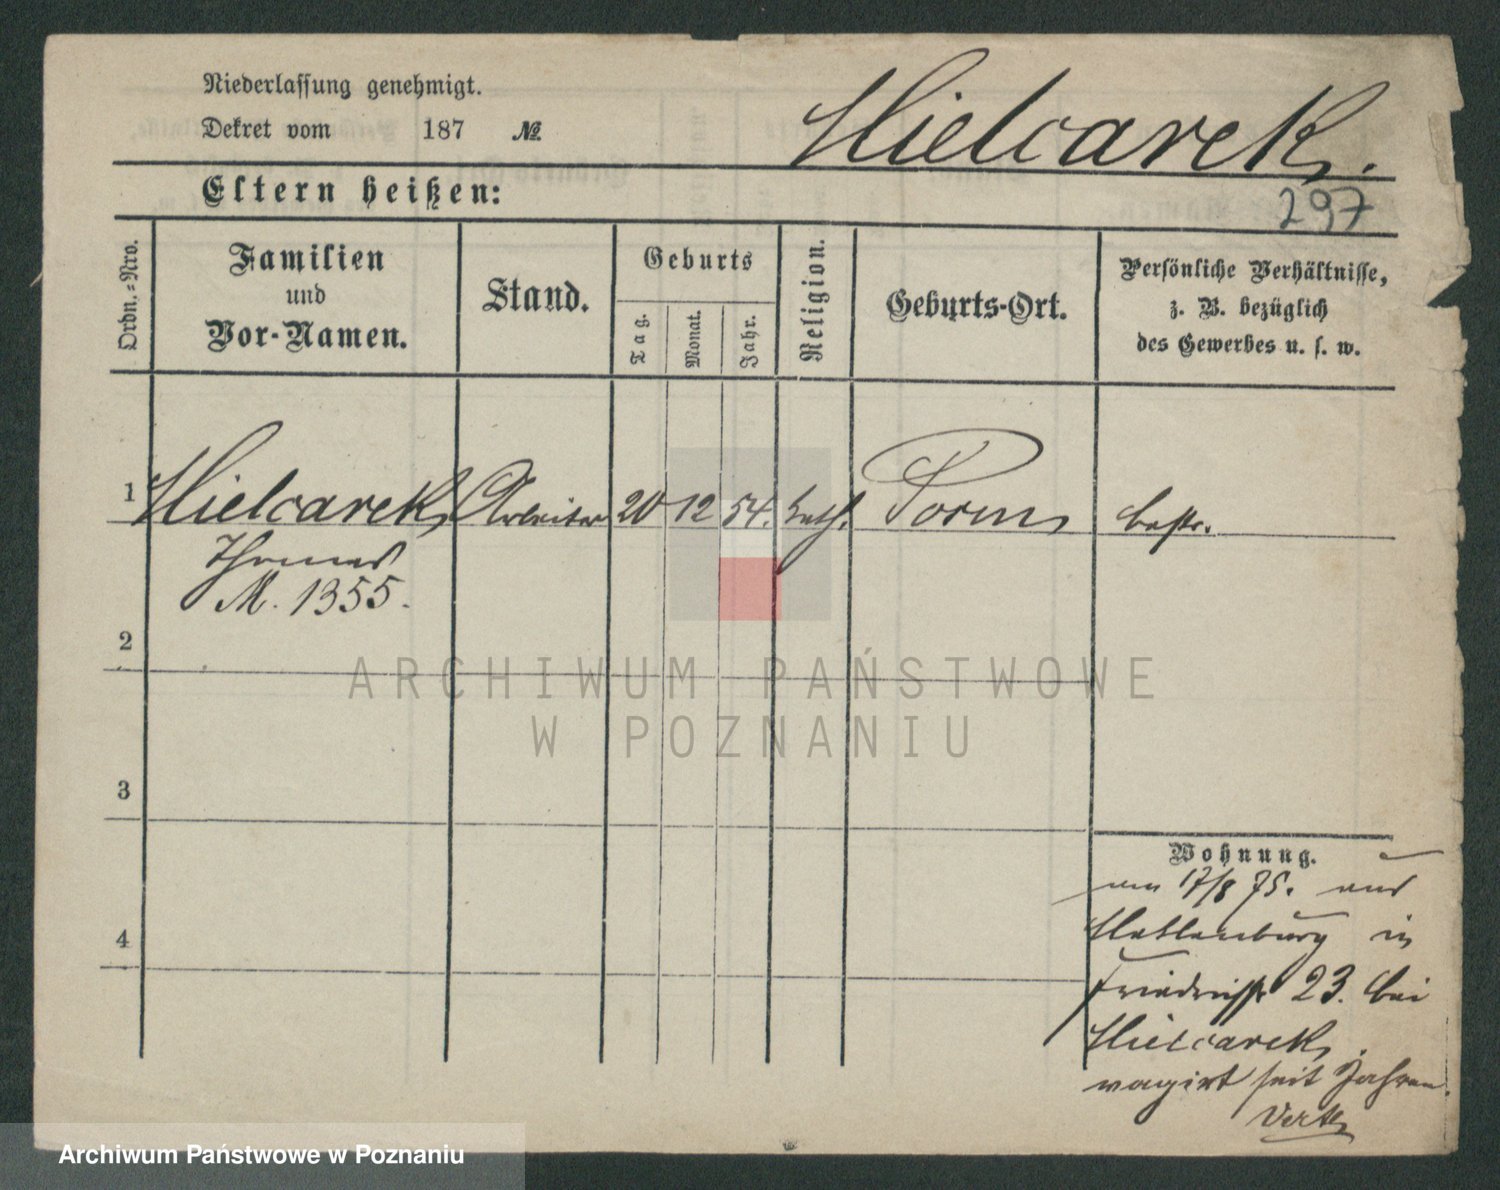 Niederlassung genehmigt.
Dekret vom 187 №
Mielcarek.
Eltern heißen:
297
Ordn.-Nro.
Familien
und
Vor-Namen.
Stand.
Geburts
Tag.
Monat.
Jahr.
Religion.
Geburts-Ort.
Persönliche Verhältnisse,
z. B. bezüglich
des Gewerbes u. s. w.
1 Mielcarek Arbeiter 20 12 54. kath. Posen bestr.
Thomas
M. 1355.
2
3
4
Wohnung.
am 17/8 75. aus
in
Friedrichstr 23. bei
Mielcarek.
vagirt seit Jahren.
ARCHIWUM PAŃSTWOWE
W POZNANIU
Archiwum Państwowe w Poznaniu